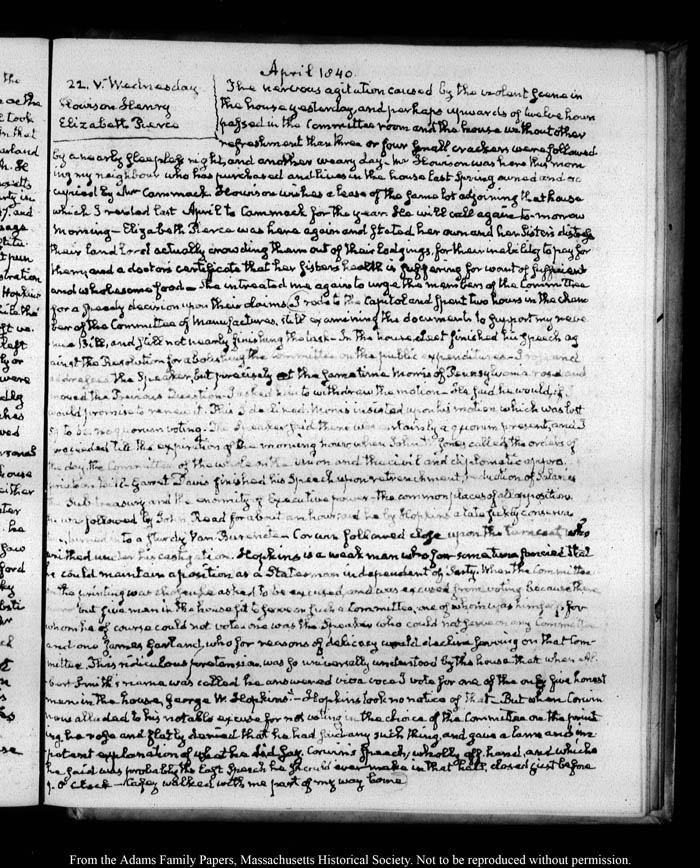 April 1840.
22. V. Wednesday
Howison Henry
Elizabeth Pierce
The nervous agitation caused by the violent scene in
the house yesterday, and perhaps upwards of twelve hours
passed in the Committee room and the house without other
refreshment than three or four small crackers were followed
by a nearly sleepless night, and another weary day. Mr Howison was here this morn
ing my neighbour who has purchased and lives in the house last Spring owned and oc
cupied by Mr Cammack. Howison wishes a lease of the same lot adjoining that house
which I rented last April to Cammack for the year. He will call again to-morrow
morning— Elizabeth Pierce was here again and stated her own and her Sister's distress
their land lord actually crowding them out of their lodgings, for their inability to pay for
them; and a doctor's certificate that her Sister's health is suffering for want of sufficient
and wholesome food— She intreated me again to urge the members of the Committee
for a speedy decision upon their claims. I rode to the Capitol and spent two hours in the cham
ber of the Committee of Manufactures, still examining the documents to support my reve
nue Bill, and still not nearly finishing the task— In the house, finished his Speech ag
ainst the Resolution for abolishing the Committee on the public expenditures— I rose and
addressed the Speaker, but precisely at the same time Morris of Pennsylvania rose and
moved the Previous Question. I asked him to withdraw the motion— He said he would if I
would promise to renew it. This I declined. Morris insisted upon his motion which was lost
no quorum voting. The Speaker said there was certainly a quorum present, and I
proceeded till the expiration of the morning hour when John W. Jones called the orders of
the day, the Committee of the whole on the Union and the civil and diplomatic appro-
priation Bill. Garret Davis finished his Speech upon retrenchment, reduction of Salaries
the Sub treasury and the enormity of Executive power— the common places of all opposition.
he was followed by John Reed for about an hour and he by Hopkins a late conserva
turned to a sturdy Van Burenite— Corwin followed close upon the turncoat, who
writhed under his castigation. Hopkins is a weak man who for some time fancied that
he could maintain a position as a Statesman independent of Party. When the Committee
on the printing was chosen he asked to be excused, and was excused from voting because there
were but five men in the house fit to serve on such a Committee, one of whom was himself for
whom he of course could not vote one was the Speaker who could not serve on any Committee
and one James Garland, who for reasons of delicacy would decline serving on that Com-
mittee. This ridiculous pretension was so universally understood by this house that when Al-
bert Smith's name was called he answered viva voce I vote for one of the only five honest
men in the house, George W. Hopkins"— Hopkins took no notice of that— But when Corwin
now alluded to his notable excuse for not voting in the choice of the Committee on the print
ing, he rose and flatly denied that he had said any such thing, and gave a lame and im
potent explanation of what he did say. Corwin's Speech, wholly off-hand, and which
he said was probably the last Speech he should ever make in that hall, closed just before
9. O'Clock— walked with me part of my way home
From the Adams Family Papers, Massachusetts Historical Society. Not to be reproduced without permission.